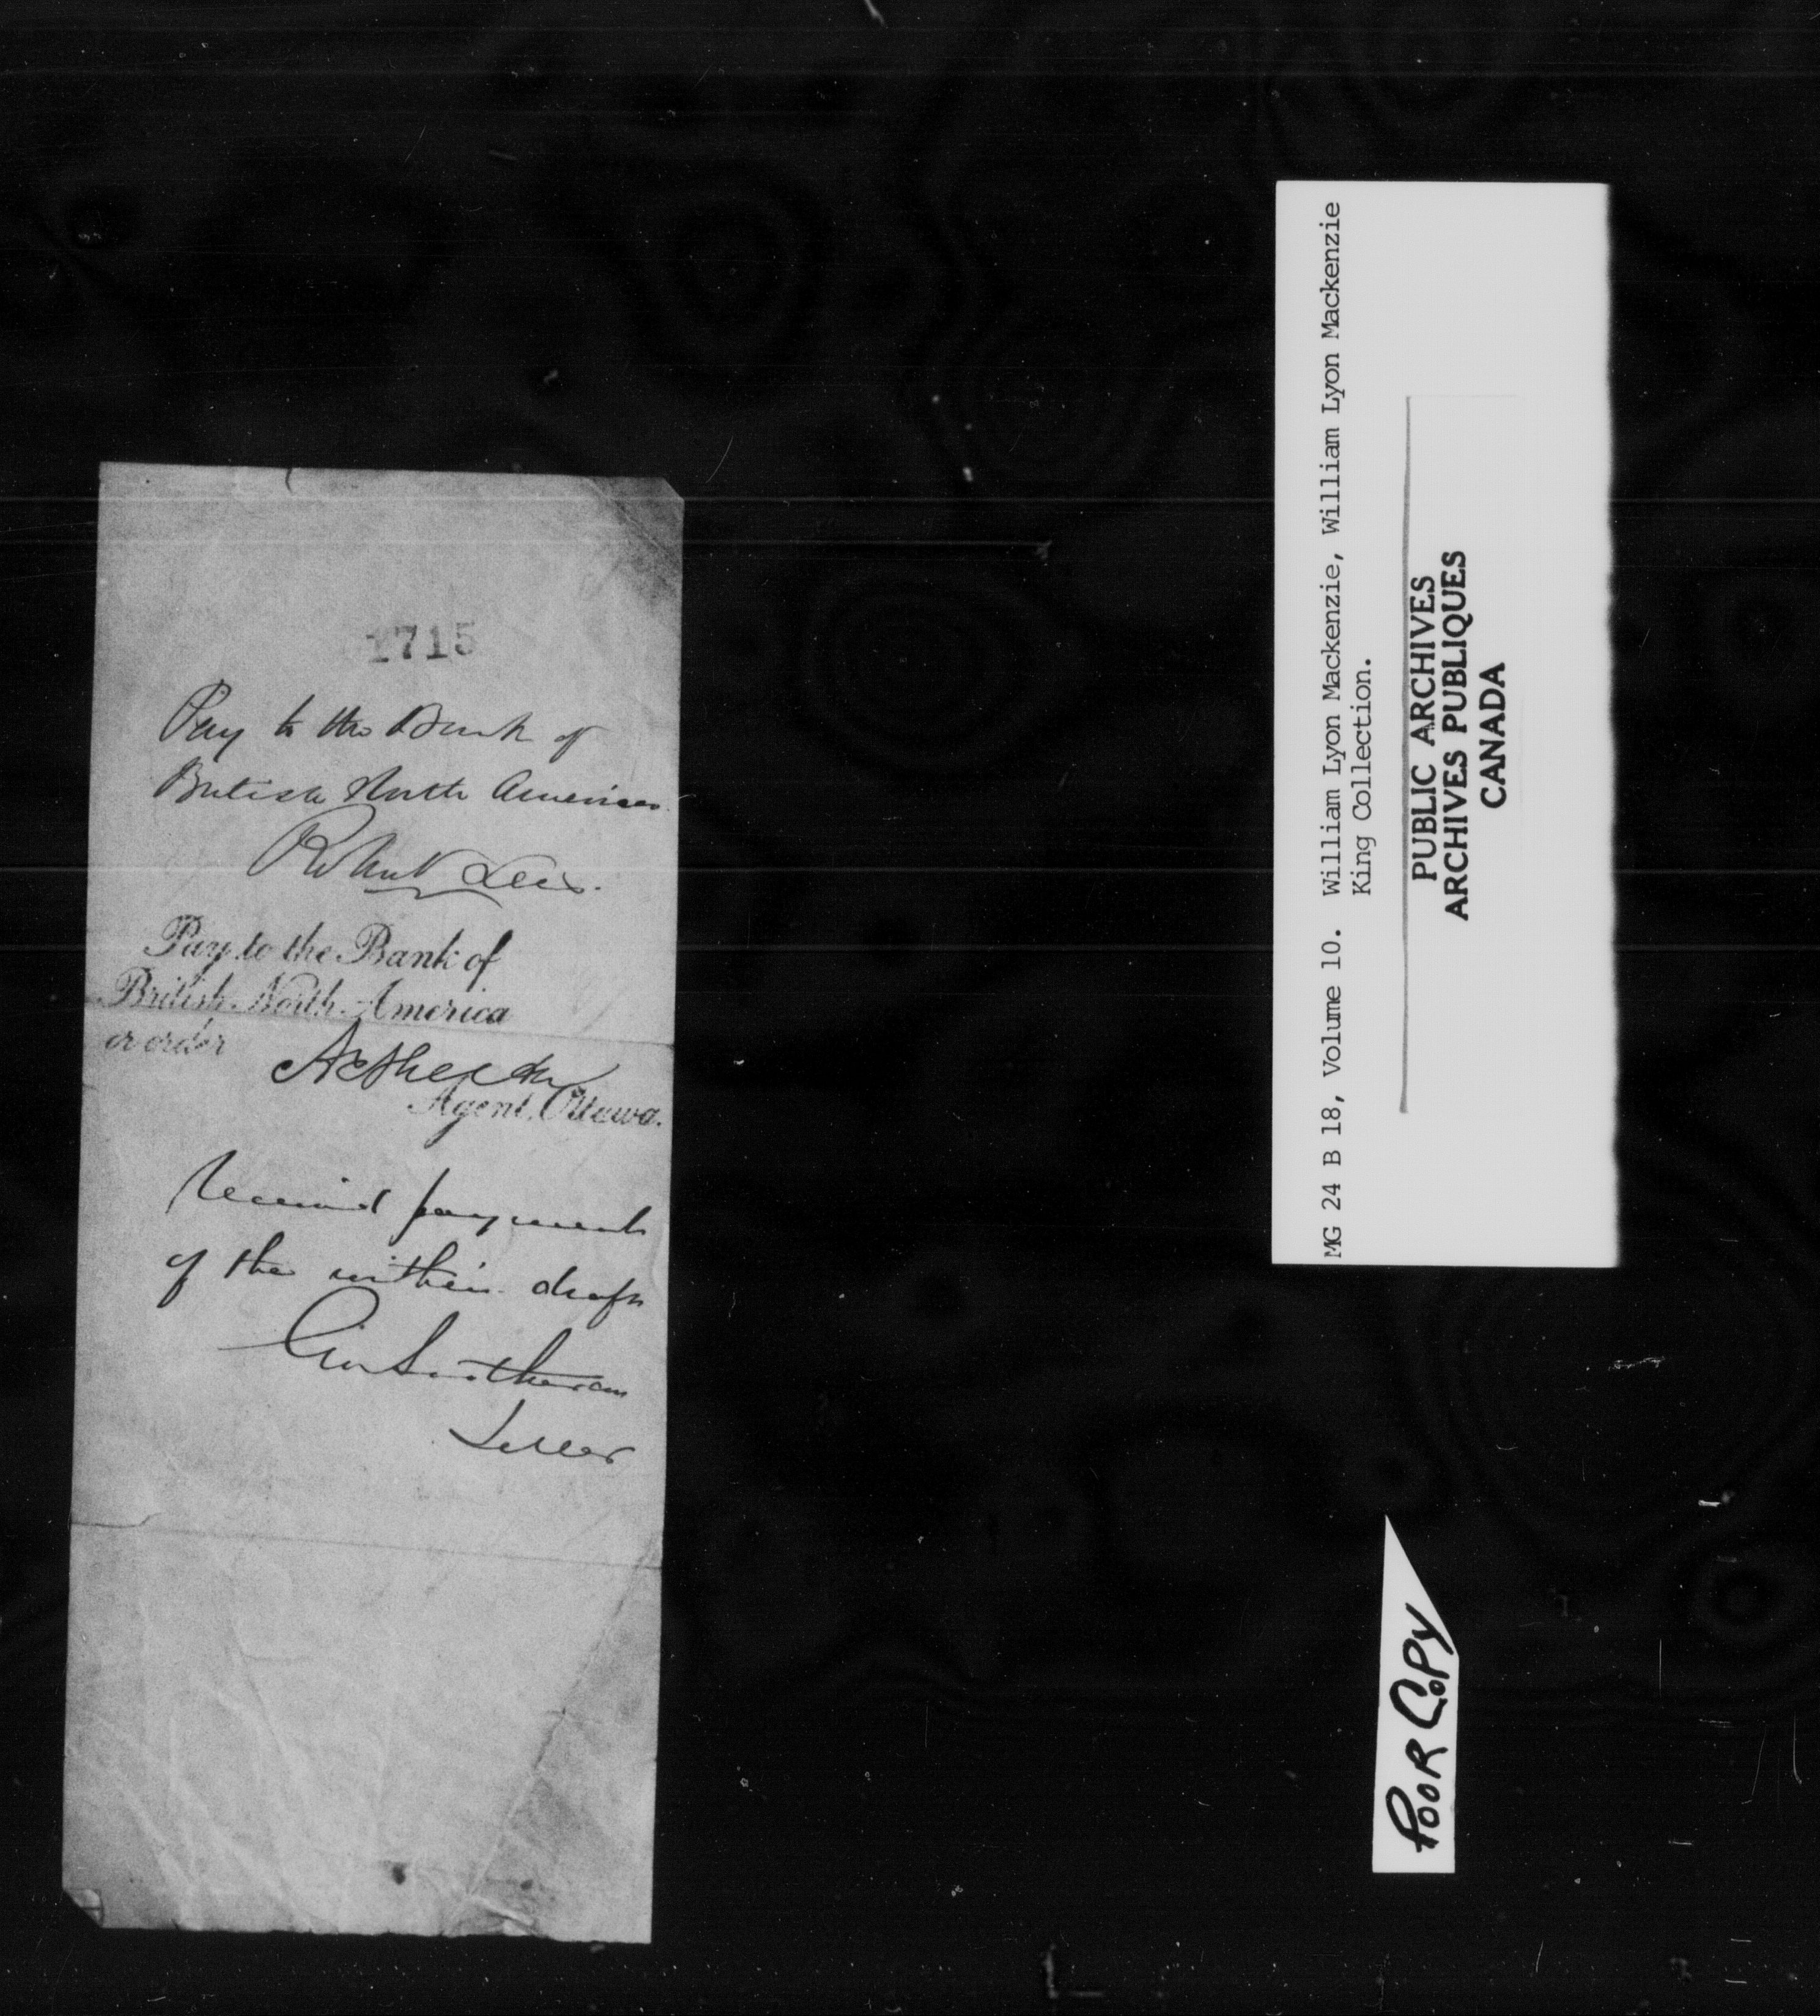 1715
Pay to the Bank of
British North America
Robert Lees.
Pay to the Bank of
British North America
or order
Agent, Ottawa.
Received payment
of the within draft
Teller
MG 24 B 18, Volume 10. William Lyon Mackenzie, William Lyon Mackenzie
King Collection.
PUBLIC ARCHIVES
ARCHIVES PUBLIQUES
CANADA
POOR COPY